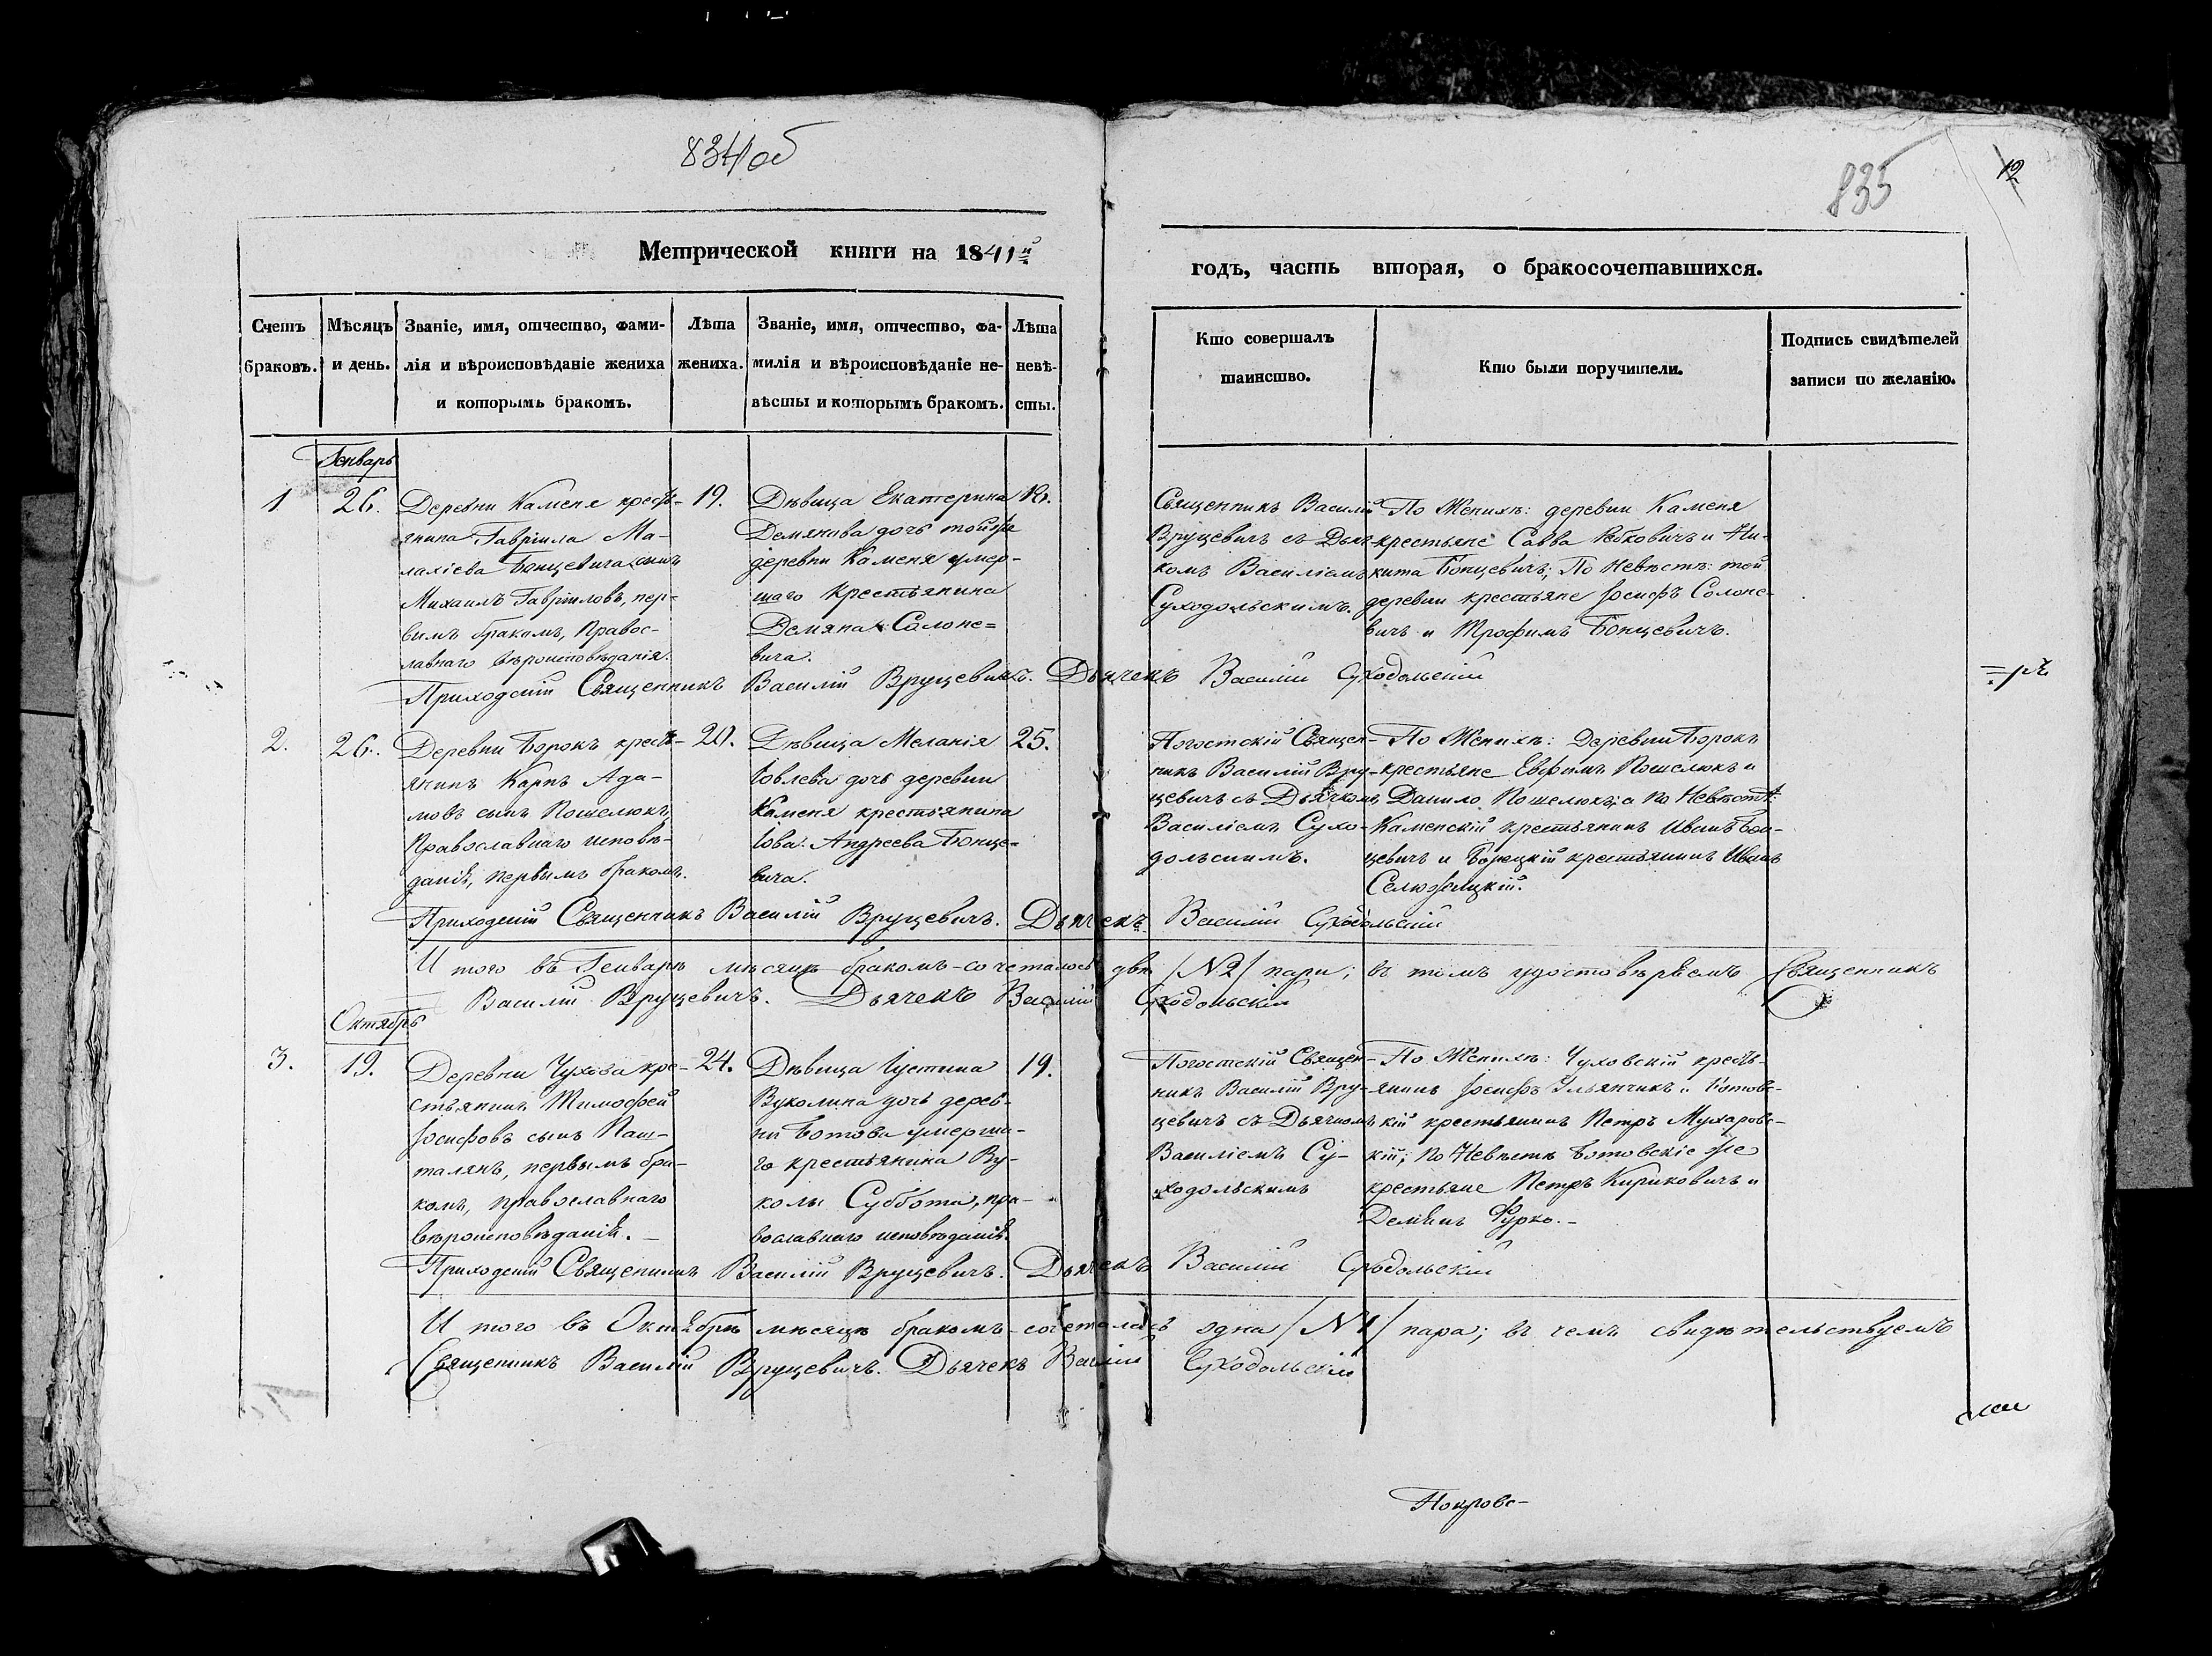 834 об
835
12
Метрической книги на 1841й
годъ, часть вторая, о бракосочетавшихся.
Счетъ браковъ.
Мѣсяцъ и день.
Званіе, имя, отчество, фами-
лія и вѣроисповѣданіе жениха
и которымъ бракомъ.
Лѣта
жениха.
Званіе, имя, отчество, фа-
милія и вѣроисповѣданіе не-
вѣсты и которымъ бракомъ.
Лѣта
невѣ-
сты.
Кто совершалъ
таинство.
Кто были поручители.
Подпись свидѣтелей
записи по желанію.
Генварь
1
26.
Деревни Каменя кресть-
янина Гавріила Ма-
лахіева Бонцевича сынъ
Михаилъ Гавріиловъ, пер-
вымъ бракомъ, Правос-
лавнаго вѣроисповѣданія.
19.
Дѣвица Екатерина
Демянова дочь той же
деревни Каменя умер-
шаго крестьянина
Демяна Солоне=
вича.
Священникъ Василій
Вруцевичъ съ Дьяч-
комъ Василіемъ
Суходольскимъ.
По Женихѣ: деревни Каменя
крестьяне Савва и Ни-
кита Бонцевичъ; По Невѣстѣ: той
деревни крестьяне Іосифъ Солоне-
вичъ и Трофимъ Бонцевичъ.
Приходскій Священникъ Василій Вруцевичъ. Дьячекъ Василій Суходольскій
2.
26.
Деревни Борокъ кресть-
янинъ Карпъ Ада-
мовъ сынъ Пошелюкъ,
Православнаго исповѣ-
данія, первымъ бракомъ.
20.
Дѣвица Меланія
Іовлева дочь деревни
Каменя крестьянина
Іова Андреева Бонце-
вича.
25.
Погостскій Священ-
никъ Василій Вру-
цевичъ съ Дьячкомъ
Василіемъ Сухо-
дольскимъ.
По Женихѣ: Деревни Борокъ
крестьяне Евфимъ Пошелюкъ и
Данило Пошелюкъ; а по Невѣстѣ:
Каменскій крестьянинъ Иванъ Бон-
цевичъ и Борецкій крестьянинъ Иванъ
Селюжицкій.
Приходскій Священникъ Василій Вруцевичъ. Дьячекъ Василій Суходольскій
И того въ Генварѣ мѣсяцѣ бракомъ сочеталось двѣ /№2/ пары; въ томъ удостовѣряемъ Священникъ
Василій Вруцевичъ. Дьячекъ Василій Суходольскій
Октябрь
3.
19.
Деревни Чухова кре-
стьянинъ Тимофей
Іосифовъ сынъ Паш-
талянъ, первымъ бра-
комъ, православнаго
вѣроисповѣданія.
24.
Дѣвица Іустина
Вуколина дочь дерев-
ни Ботова умерша-
го крестьянина Ву-
колы Суббота, пра-
вославнаго исповѣданія.
19.
Погостскій Священ-
никъ Василій Вру-
цевичъ съ Дьячкомъ
Василіемъ Су-
ходольскимъ
По Женихѣ: Чуховскій кресть-
янинъ Іосифъ Ульянчикъ и Ботовс-
кій крестьянинъ Петръ Мухаровс-
кій; по Невѣстѣ Ботовскіе же
крестьяне Петръ Кириковичъ и
Демьянъ Фурко.
Приходскій Священникъ Василій Вруцевичъ. Дьячекъ Василій Суходольскій
И того въ Октябрѣ мѣсяцѣ бракомъ сочеталась одна /№1/ пара; въ чемъ свидѣтельствуемъ
Священникъ Василій Вруцевичъ. Дьячекъ Василій Суходольскій
Покровс-